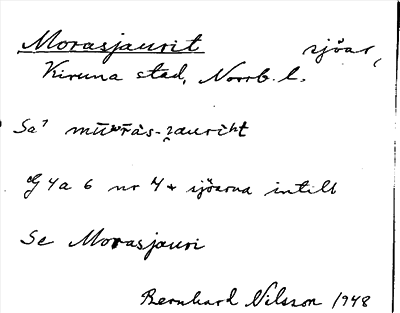 Morasjaurit sjöar,
Kiruna stad, Norrb. l.
Sa⁷
G 4a 6 nr 4 + sjöarna intill
Se Morasjauri
Bernhard Nilsson 1948